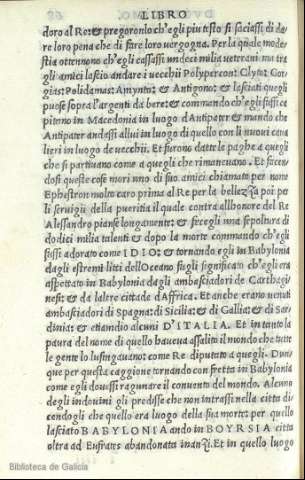 LIBRO
doro al Re: & pregoronlo ch'egli piu tosto si saciassi di da
re loro pena che di fare loro vergogna. Per la quale mode
stia ottennono ch'egli cassassi undeci milia veterani ma tra
gli amici lascio andare i vecchii Polypercon: Clyto: Gor
gias: Polidamas: Amynta: & Antigono: & lasciati quegli
puose sopra l'argenti da bere: & commando ch'egli fussi ca
pitano in Macedonia in luogo d'Antipater & mando che
Antipater andassi allui in luogo di quello con li nuovi cava
lieri in luogo de vecchii. Et furono datte le paghe a quegli
che si partivano come a quegli che rimanevano. Et facen
dosi queste cose mori uno di suoi amici chiamato per nome
Ephestion molto caro prima al Re per la bellezza poi per
li servigii della pueritia il quale contra allhonore del Re
Alessandro pianse longamente: & fecegli una sepoltura di
dodici milia talenti & dopo la morte commando ch'egli
fussi adorato come IDIO: & tornando egli in Babylonia
dagli estremi litti dello Oceano fugli significato ch'egli era
aspettato in Babylonia dagli ambasciadori de Carthagi
nesi: & da l'altre cittade d'Affrica. Et anche erano venuti
ambasciadori di Spagna: di Sicilia: & di Gallia: & di Sar
dinia: & etiamdio alcuni D'ITALIA. Et in tanto la
paura del nome di quello haueva assalito il mondo che tutte
le gente lo lusingavano: come Re diputato a quegli. Dun
que per questa caggione tornando con fretta in Babylonia
come egli dovessi ragunare il convento del mondo. Alcuno
degli indovini gli predisse che non intrassi nella citta di
cendogli che quello era luogo della sua morte: per quello
lasciato BABYLONIA ando in BOYRSIA citta
oltra ad Eufrates abandonata inanzi. Et in quello luogo
Biblioteca de Galicia